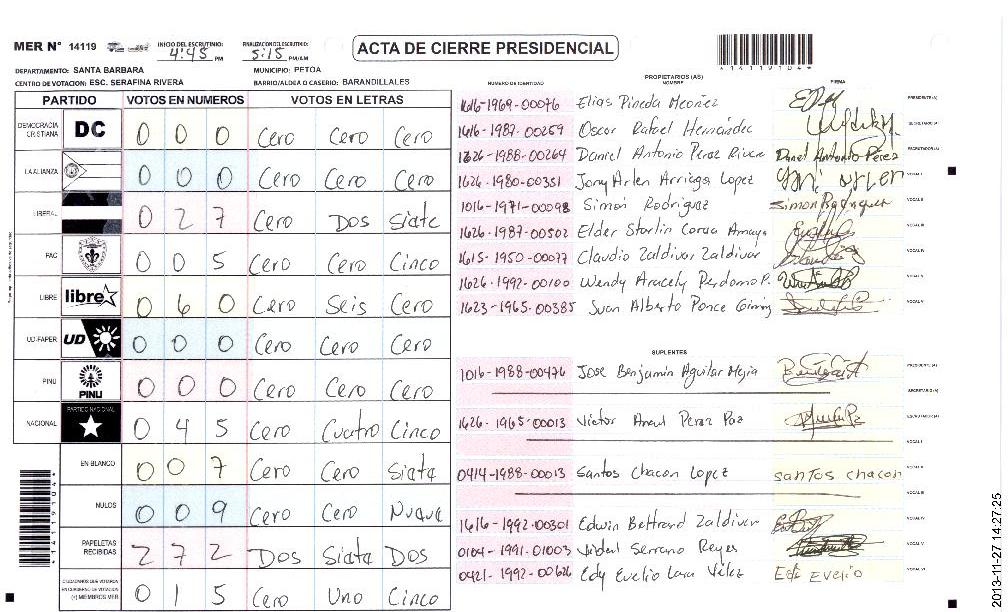 MER N° 14119 INICIO DEL ESCRUTINIO: 4:45 PM FINALIZACION DEL ESCRUTINIO: 5:15 PM/AM ACTA DE CIERRE PRESIDENCIAL 141191044
DEPARTAMENTO: SANTA BARBARA MUNICIPIO: PETOA
CENTRO DE VOTACION: ESC. SERAFINA RIVERA BARRIO/ALDEA O CASERIO: BARANDILLALES
PARTIDO VOTOS EN NUMEROS VOTOS EN LETRAS
DEMOCRACIA CRISTIANA DC 0 0 0 Cero Cero Cero
LA ALIANZA 0 0 0 Cero Cero Cero
LIBERAL 0 2 7 Cero Dos Siete
PAC 0 0 5 Cero Cero Cinco
LIBRE libre 0 6 0 Cero Seis Cero
UD-FAPER UD 0 0 0 Cero Cero Cero
PINU PINU 0 0 0 Cero Cero Cero
NACIONAL PARTIDO NACIONAL 0 4 5 Cero Cuatro Cinco
EN BLANCO 0 0 7 Cero Cero Siete
NULOS 0 0 9 Cero Cero Nueve
PAPELETAS RECIBIDAS 2 7 2 Dos Siete Dos
CIUDADANOS QUE VOTARON EN CUADERNO DE VOTACION (+) MIEMBROS MER 0 1 5 Cero Uno Cinco
NUMERO DE IDENTIDAD PROPIETARIOS (AS) NOMBRE FIRMA
1616-1969-00076 Elias Pineda PRESIDENTE (A)
1616-1987-00259 Oscar Rafael Hernández SECRETARIO (A)
1626-1988-00264 Daniel Antonio Perez Rivera Daniel Antonio Pérez ESCRUTADOR (A)
1626-1980-00351 Jony Arlen Arriaga Lopez VOCAL I
1016-1971-00098 Simon Rodriguez Simon Rodriguez VOCAL II
1626-1987-00502 Elder Starlin Amaya VOCAL III
1615-1950-00077 Claudio Zaldivar Zaldivar VOCAL IV
1626-1992-00100 Wendy Aracely Perdomo P. VOCAL V
1623-1965-00385 Juan Alberto Ponce VOCAL VI
SUPLENTES
1016-1988-00476 Jose Benjamin Aguilar Mejia PRESIDENTE (A)
SECRETARIO (A)
1626-1965-00013 Victor Perez Paz ESCRUTADOR (A)
VOCAL I
0414-1988-00013 Santos Chacon Lopez santos chacon VOCAL II
VOCAL III
1616-1992-00301 Edwin Beltrand Zaldivar VOCAL IV
0104-1991-01003 Serrano Reyes VOCAL V
0421-1992-00626 Edy Evelio Lara Vélez Evelio VOCAL VI
141191044
2013-11-27 14:27:25